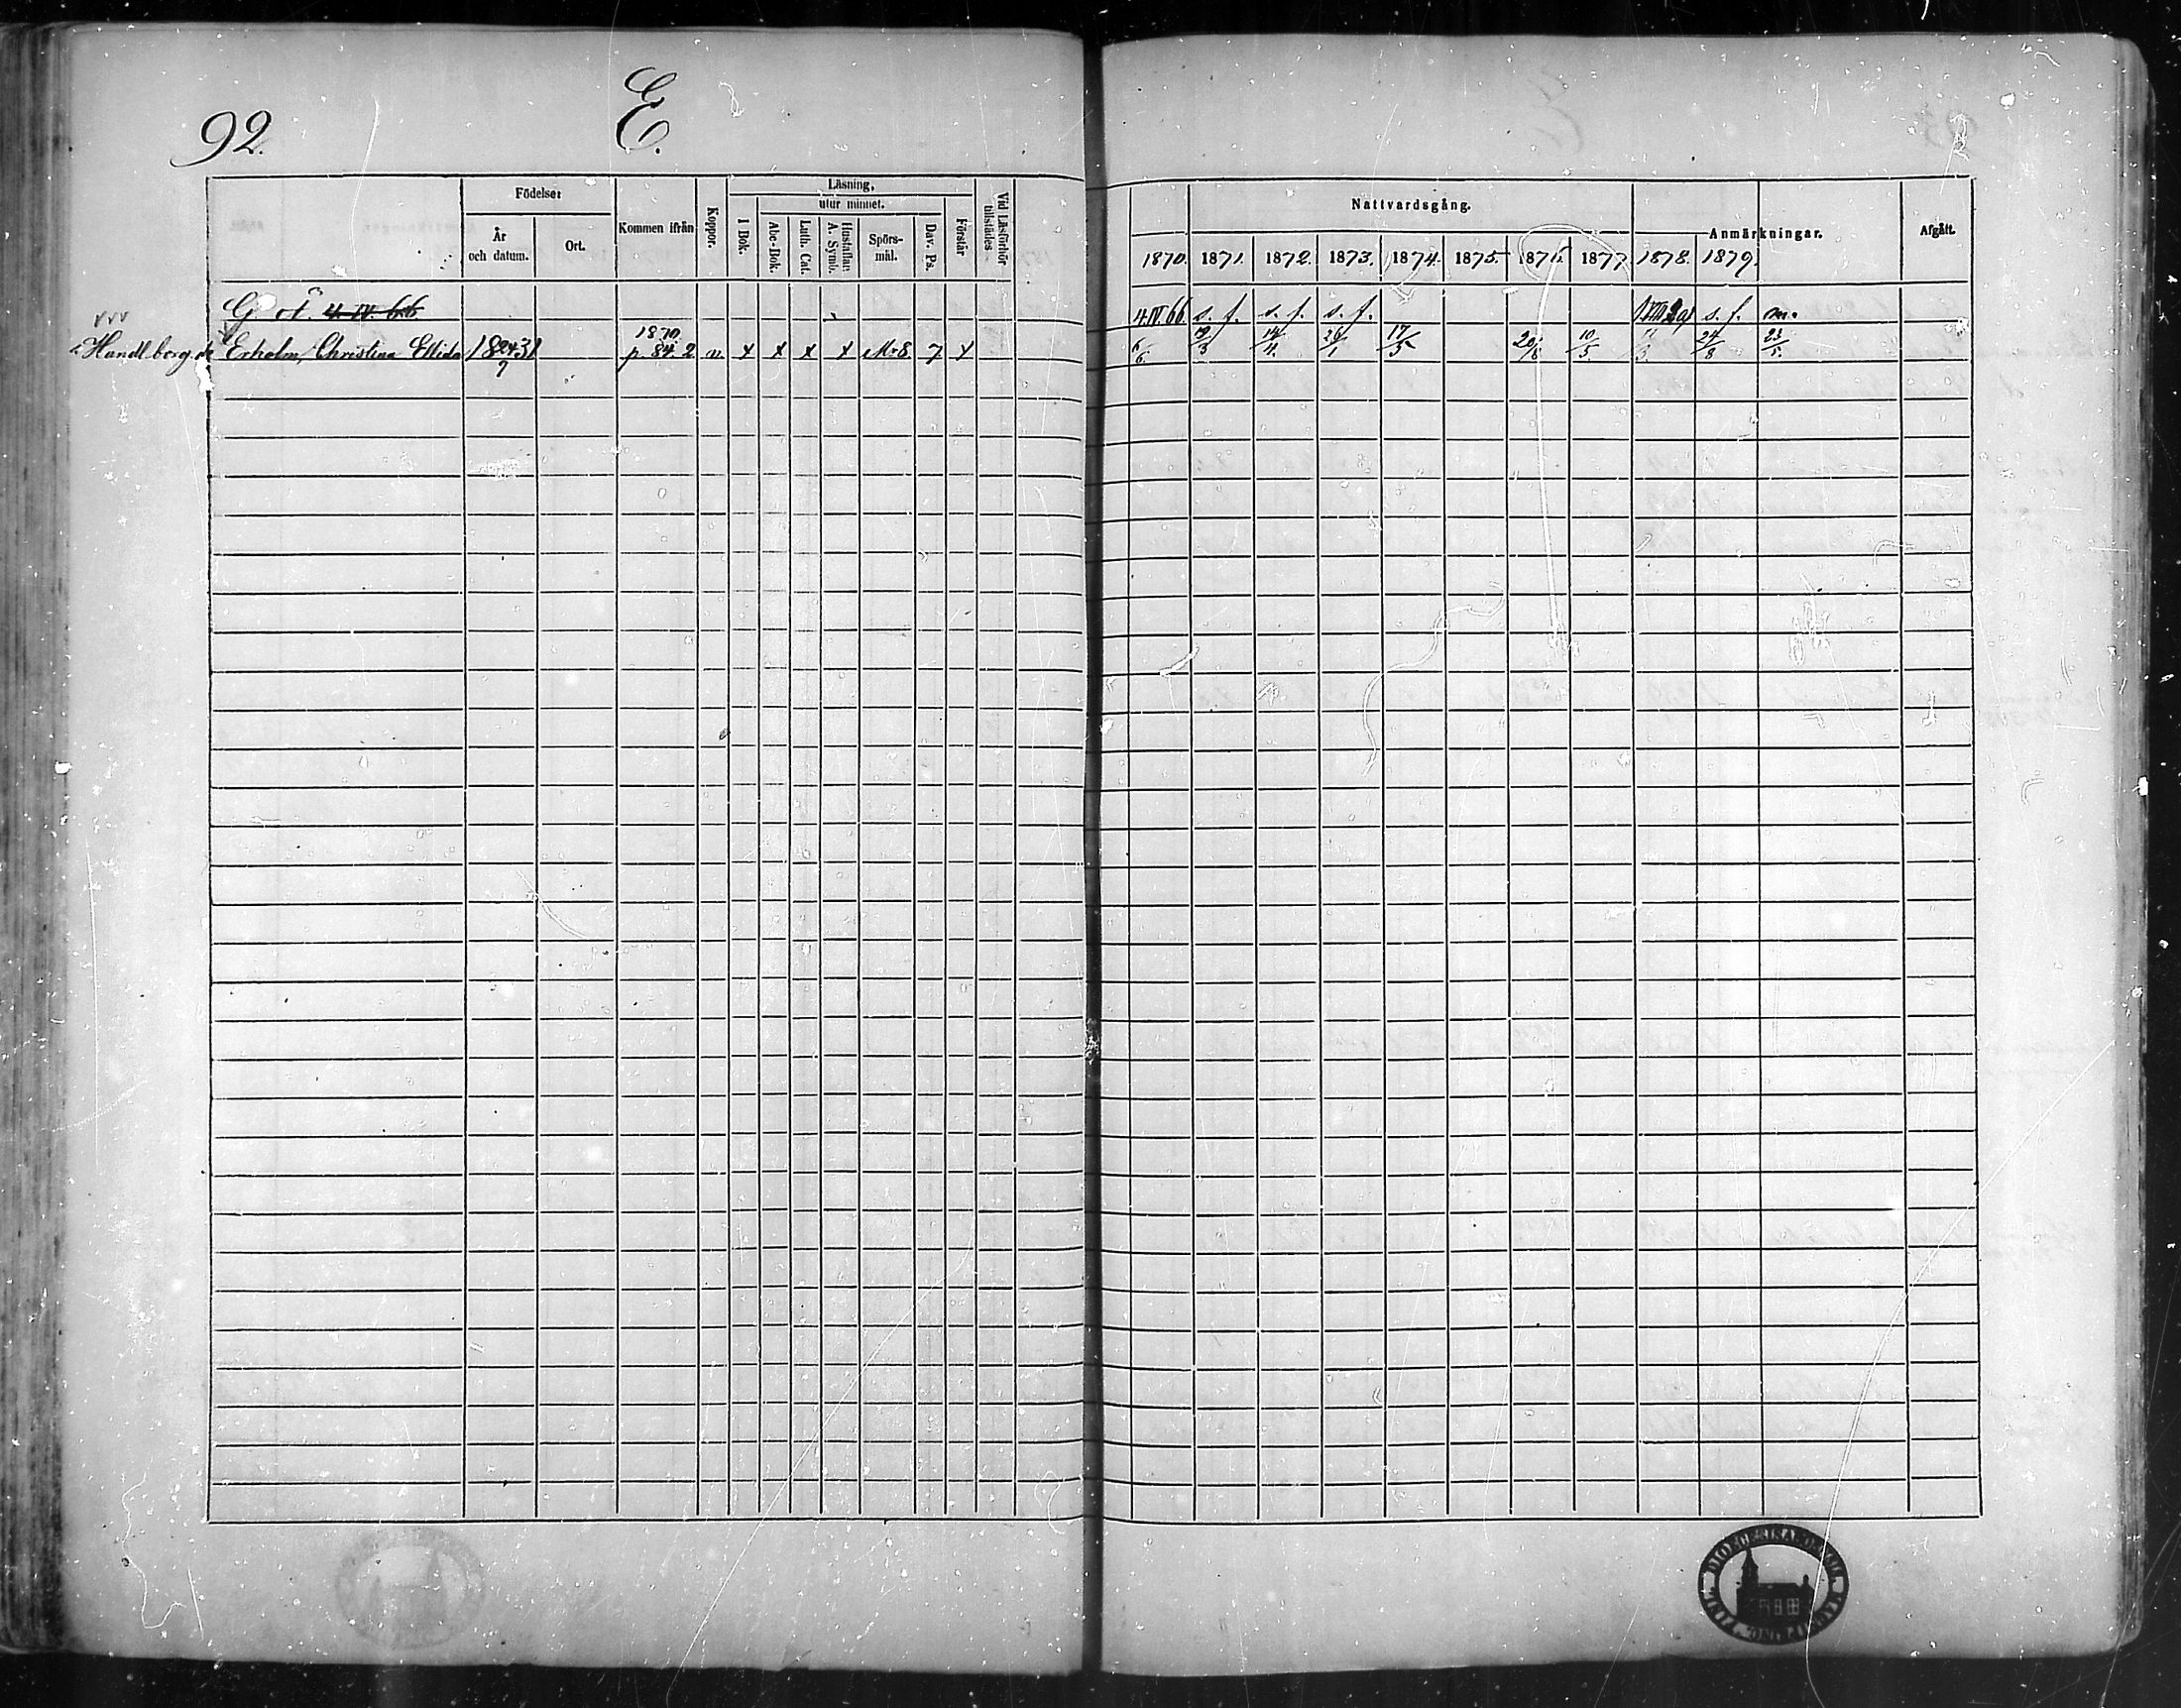 92.
E.
Födelse:
Läsning,
utur minnet.
År och datum.
Ort.
Kommen ifrån
Koppor.
I Bok.
Abc-Bok.
Luth. Cat.
Hustaflan A. Symb.
Spörs-mål.
Dav. Ps.
Förstår
Vid Läsförhör tillstädes
Nattvardsgång.
Anmärkningar.
Afgått.
1870. 1871. 1872. 1873. 1874. 1875. 1876. 1877. 1878. 1879.
G. ot. 4. IV. 66.
4.IV.66 s. f. s. f. s. f. s. f. m.
1870.
Handl.borg.d. Erholm, Christina Ellida p. 84. 2 v. x x x x 7 x
6/6. 19/3 14/11. 26/1 17/5 20/8 10/5 11/3. 24/8 23/5.